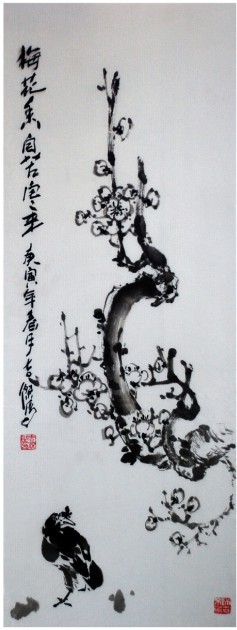 梅花香自苦寒来 庚寅年春月